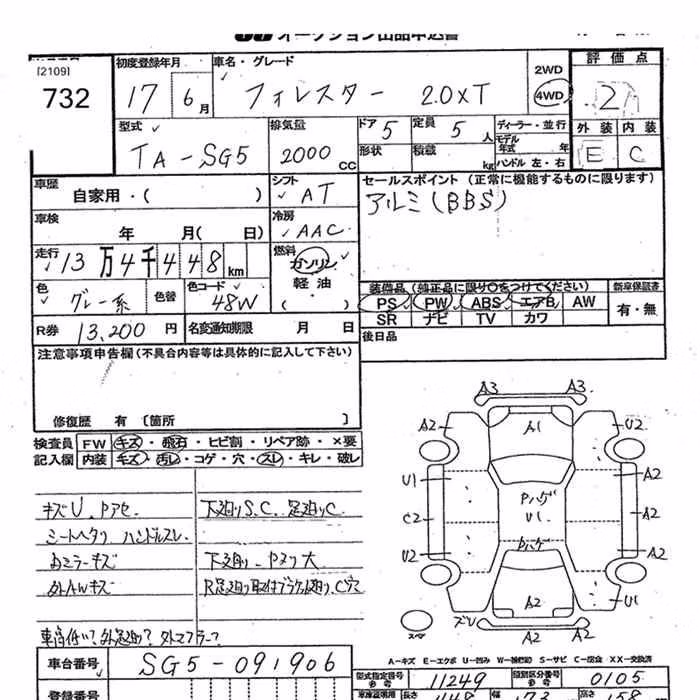 オークション出品申込書
[2109]
732
初度登録年月 17 6月
車名・グレード フォレスター 2.0XT
2WD
4WD
評価点
2
型式 TA-SG5
排気量 2000 CC
ドア 5
定員 5人
形状
積載 kg
ディーラー・並行
モデル年式 年
ハンドル 左・右
外装 内装
E C
車歴 自家用・( )
シフト AT
セールスポイント (正常に機能するものに限ります)
アルミ(BBS)
車検 年 月( 日)
冷房 AAC
走行 13万4千448km
燃料 ガソリン
軽油
( )
色 グレー系
色替
色コード 48W
装備品 (純正品に限り○をつけてください)
新車保証書
PS PW ABS エアB AW
有・無
SR ナビ TV カワ
R券 13,200円
名変通知期限 月 日
後日品
注意事項申告欄(不具合内容等は具体的に記入して下さい)
修復歴 有 〔箇所 〕
検査員 FW キズ・飛石・ヒビ割・リペア跡・×要
記入欄 内装 キズ・汚レ・コゲ・穴・スレ・キレ・破レ
キズU. Pアセ. 下廻りS.C. 足廻りC
シートヘタリ ハンドルスレ.
ミラーキズ
外AWキズ
A3 A3
A2 A1 U2
U1 Pハゲ A2
C2 U1 A2
U2 Pハゲ A2
A2 U1
A2 A2
スペア
A-キズ E-エクボ U-凹み W-補修跡 S-サビ C-腐食 XX-交換済
車台番号 SG5-091906
型式指定番号 11249
類別区分番号 0105
登録番号